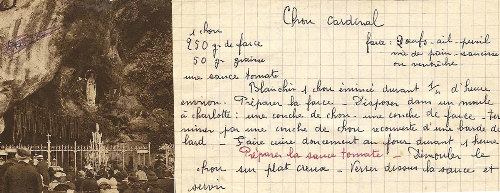 Chou cardinal
1 chou
250 gr de farce
50 gr graisse
une sauce tomate
farce : Oeufs - ail - persil
mie de pain - saucisse
ou ventrèche
Blanchir 1 chou émincé durant 1/4 d'heure
environ. Préparer la farce - Disposer dans un moule
à charlotte : une couche de chou - une couche de farce - Ter
miner par une couche de chou recouverte d'une barde de
lard - Faire cuire doucement au four durant 1 heure
Préparer la sauce tomate. - Démouler le
chou sur plat creux - Verser dessus la sauce et
servir